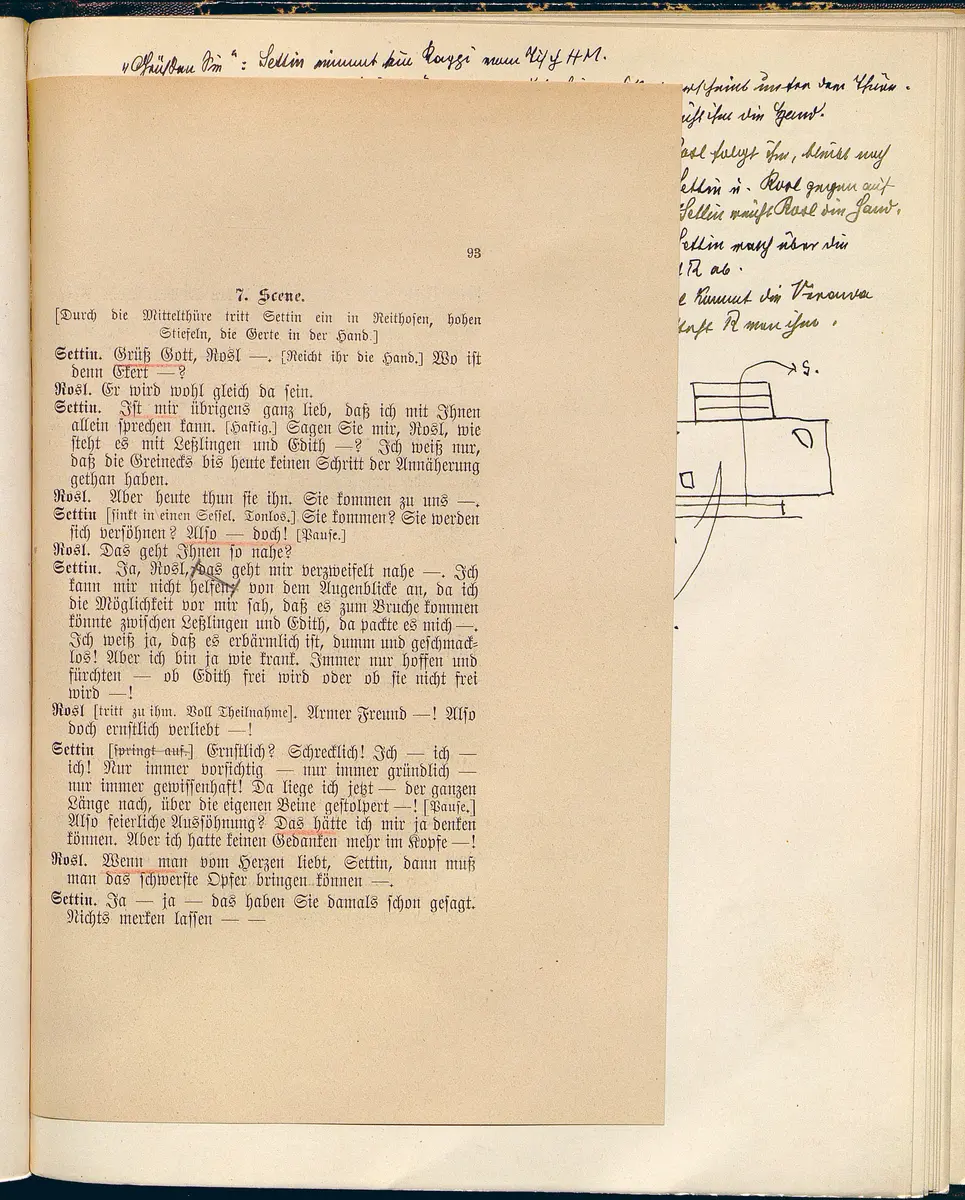 Settin nimmt sein Kappi vom Tisch HM.
erscheint unter dem
reicht ihm die Hand.
Rosl folgt ihm, bleibt noch
Settin u. Rosl gegen auf
Settin reicht Rosl die Hand.
Settin rasch über die
R ab.
kommt die Veranda
R von ihm.
S.
93
7. Scene.
[Durch die Mittelthüre tritt Settin ein in Reithosen, hohen
Stiefeln, die Gerte in der Hand.]
Settin. Grüß Gott, Rosl —. [Reicht ihr die Hand.] Wo ist
denn Ekert —?
Rosl. Er wird wohl gleich da sein.
Settin. Ist mir übrigens ganz lieb, daß ich mit Ihnen
allein sprechen kann. [Hastig.] Sagen Sie mir, Rosl, wie
steht es mit Leßlingen und Edith —? Ich weiß nur,
daß die Greinecks bis heute keinen Schritt der Annäherung
gethan haben.
Rosl. Aber heute thun sie ihn. Sie kommen zu uns —.
Settin [sinkt in einen Sessel. Tonlos.] Sie kommen? Sie werden
sich versöhnen? Also — doch! [Pause.]
Rosl. Das geht Ihnen so nahe?
Settin. Ja, Rosl, das geht mir verzweifelt nahe —. Ich
kann mir nicht helfen, von dem Augenblicke an, da ich
die Möglichkeit vor mir sah, daß es zum Bruche kommen
könnte zwischen Leßlingen und Edith, da packte es mich —.
Ich weiß ja, daß es erbärmlich ist, dumm und geschmack-
los! Aber ich bin ja wie krank. Immer nur hoffen und
fürchten — ob Edith frei wird oder ob sie nicht frei
wird —!
Rosl [tritt zu ihm. Voll Theilnahme]. Armer Freund —! Also
doch ernstlich verliebt —!
Settin [springt auf.] Ernstlich? Schrecklich! Ich — ich —
ich! Nur immer vorsichtig — nur immer gründlich —
nur immer gewissenhaft! Da liege ich jetzt — der ganzen
Länge nach, über die eigenen Beine gestolpert —! [Pause.]
Also feierliche Aussöhnung? Das hätte ich mir ja denken
können. Aber ich hatte keinen Gedanken mehr im Kopfe —!
Rosl. Wenn man vom Herzen liebt, Settin, dann muß
man das schwerste Opfer bringen können —.
Settin. Ja — ja — das haben Sie damals schon gesagt.
Nichts merken lassen — —